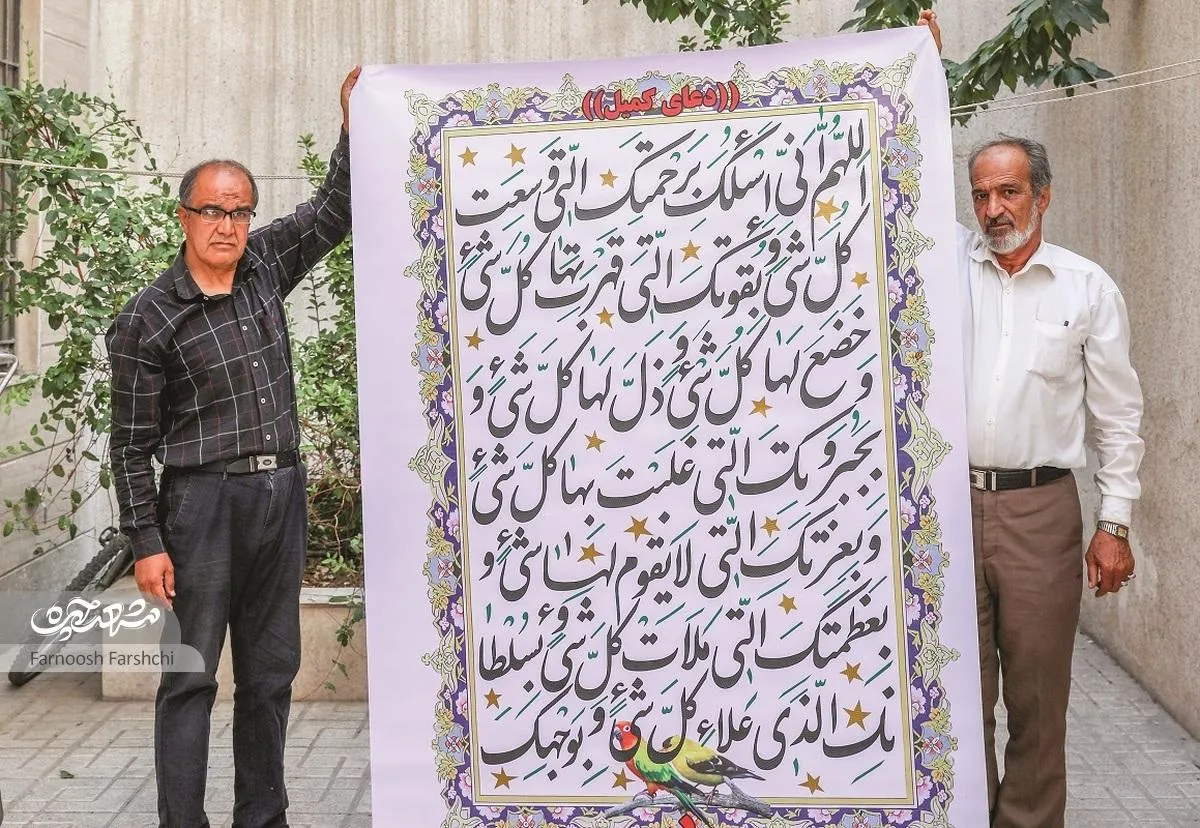 ((دعای کمیل))
اللهم انی اسئلک برحمتک التی وسعت
کل شیء و بقوتک التی قهرت بها کل شیء
و خضع لها کل شیء و ذل لها کل شیء و
بجبروتک التی غلبت بها کل شیء
و بعزتک التی لا یقوم لها شیء و
بعظمتک التی ملات کل شیء و بسلطا
نک الذی علاء کل شیء و بوجهک
شهرآرا
Farnoosh Farshchi